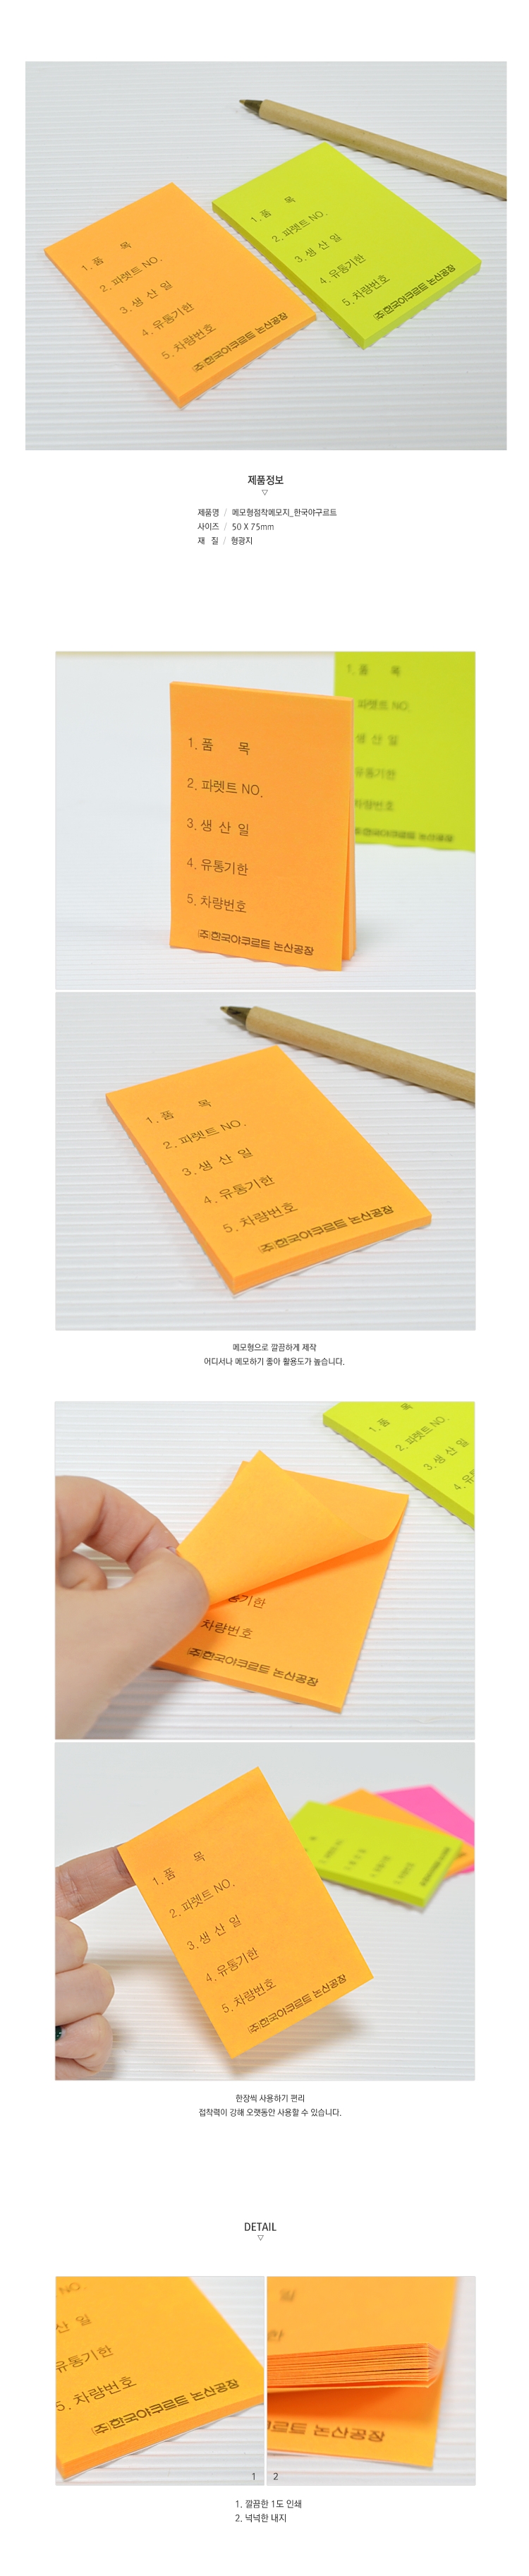 1. 품 목
2. 파렛트 NO.
3. 생 산 일
4. 유통기한
5. 차량번호
㈜한국야쿠르트 논산공장
1. 품 목
2. 파렛트 NO.
3. 생 산 일
4. 유통기한
5. 차량번호
㈜한국야쿠르트 논산공장
제품정보
▽
제품명 / 메모형점착메모지_한국야구르트
사이즈 / 50 X 75mm
재 질 / 형광지
1. 품 목
2. 파렛트 NO.
3. 생 산 일
4. 유통기한
5. 차량번호
㈜한국야쿠르트 논산공장
1. 품 목
파렛트 NO.
생 산 일
유통기한
차량번호
한국야쿠르트 논산공장
1. 품 목
2. 파렛트 NO.
3. 생 산 일
4. 유통기한
5. 차량번호
㈜한국야쿠르트 논산공장
메모형으로 깔끔하게 제작
어디서나 메모하기 좋아 활용도가 높습니다.
1. 품 목
2. 파렛트 NO.
3. 생 산 일
4. 유
통기한
차량번호
㈜한국야쿠르트 논산공장
1. 품 목
2. 파렛트 NO.
3. 생 산 일
4. 유통기한
5. 차량번호
㈜한국야쿠르트 논산공장
한장씩 사용하기 편리
접착력이 강해 오랫동안 사용할 수 있습니다.
DETAIL
▽
NO.
산 일
유통기한
5. 차량번호
㈜한국야쿠르트 논산공장
1
일
한
쿠르트 논산공장
2
1. 깔끔한 1도 인쇄
2. 넉넉한 내지